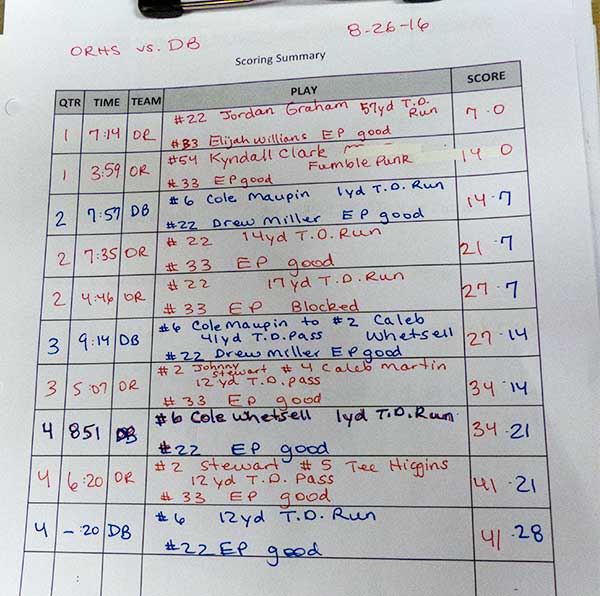 ORHS vs. DB
8-26-16
Scoring Summary
QTR TIME TEAM PLAY SCORE
#22 Jordan Graham 57yd T.D. Run
1 7:14 OR 7-0
#33 Elijah Willians EP good
#54 Kyndall Clark
1 3:59 OR Fumble Punk 14 0
#33 EP good
#6 Cole Maupin 1yd T.D. Run
2 7:57 DB 14-7
#22 Drew Miller EP good
#22 14yd T.D. Run
2 7:35 OR 21-7
#33 EP good
#22 17yd T.D. Run
2 4:46 OR 27-7
#33 EP Blocked
#6 Cole Maupin to #2 Caleb
3 9:14 DB 41yd T.D. Pass Whetsell 27-14
#22 Drew Miller EP good
#2 Johnny Stewart #4 Caleb Martin
3 5:07 OR 12 yd T.D. pass 34-14
#33 EP good
4 851 DB #6 Cole Whetsell 1yd T.D. Run 34-21
#22 EP good
#2 Stewart #5 Tee Higgins
4 6:20 OR 12yd T.D. Pass 41-21
#33 EP good
#6 12yd T.D. Run
4 -:20 DB 41-28
#22 EP good